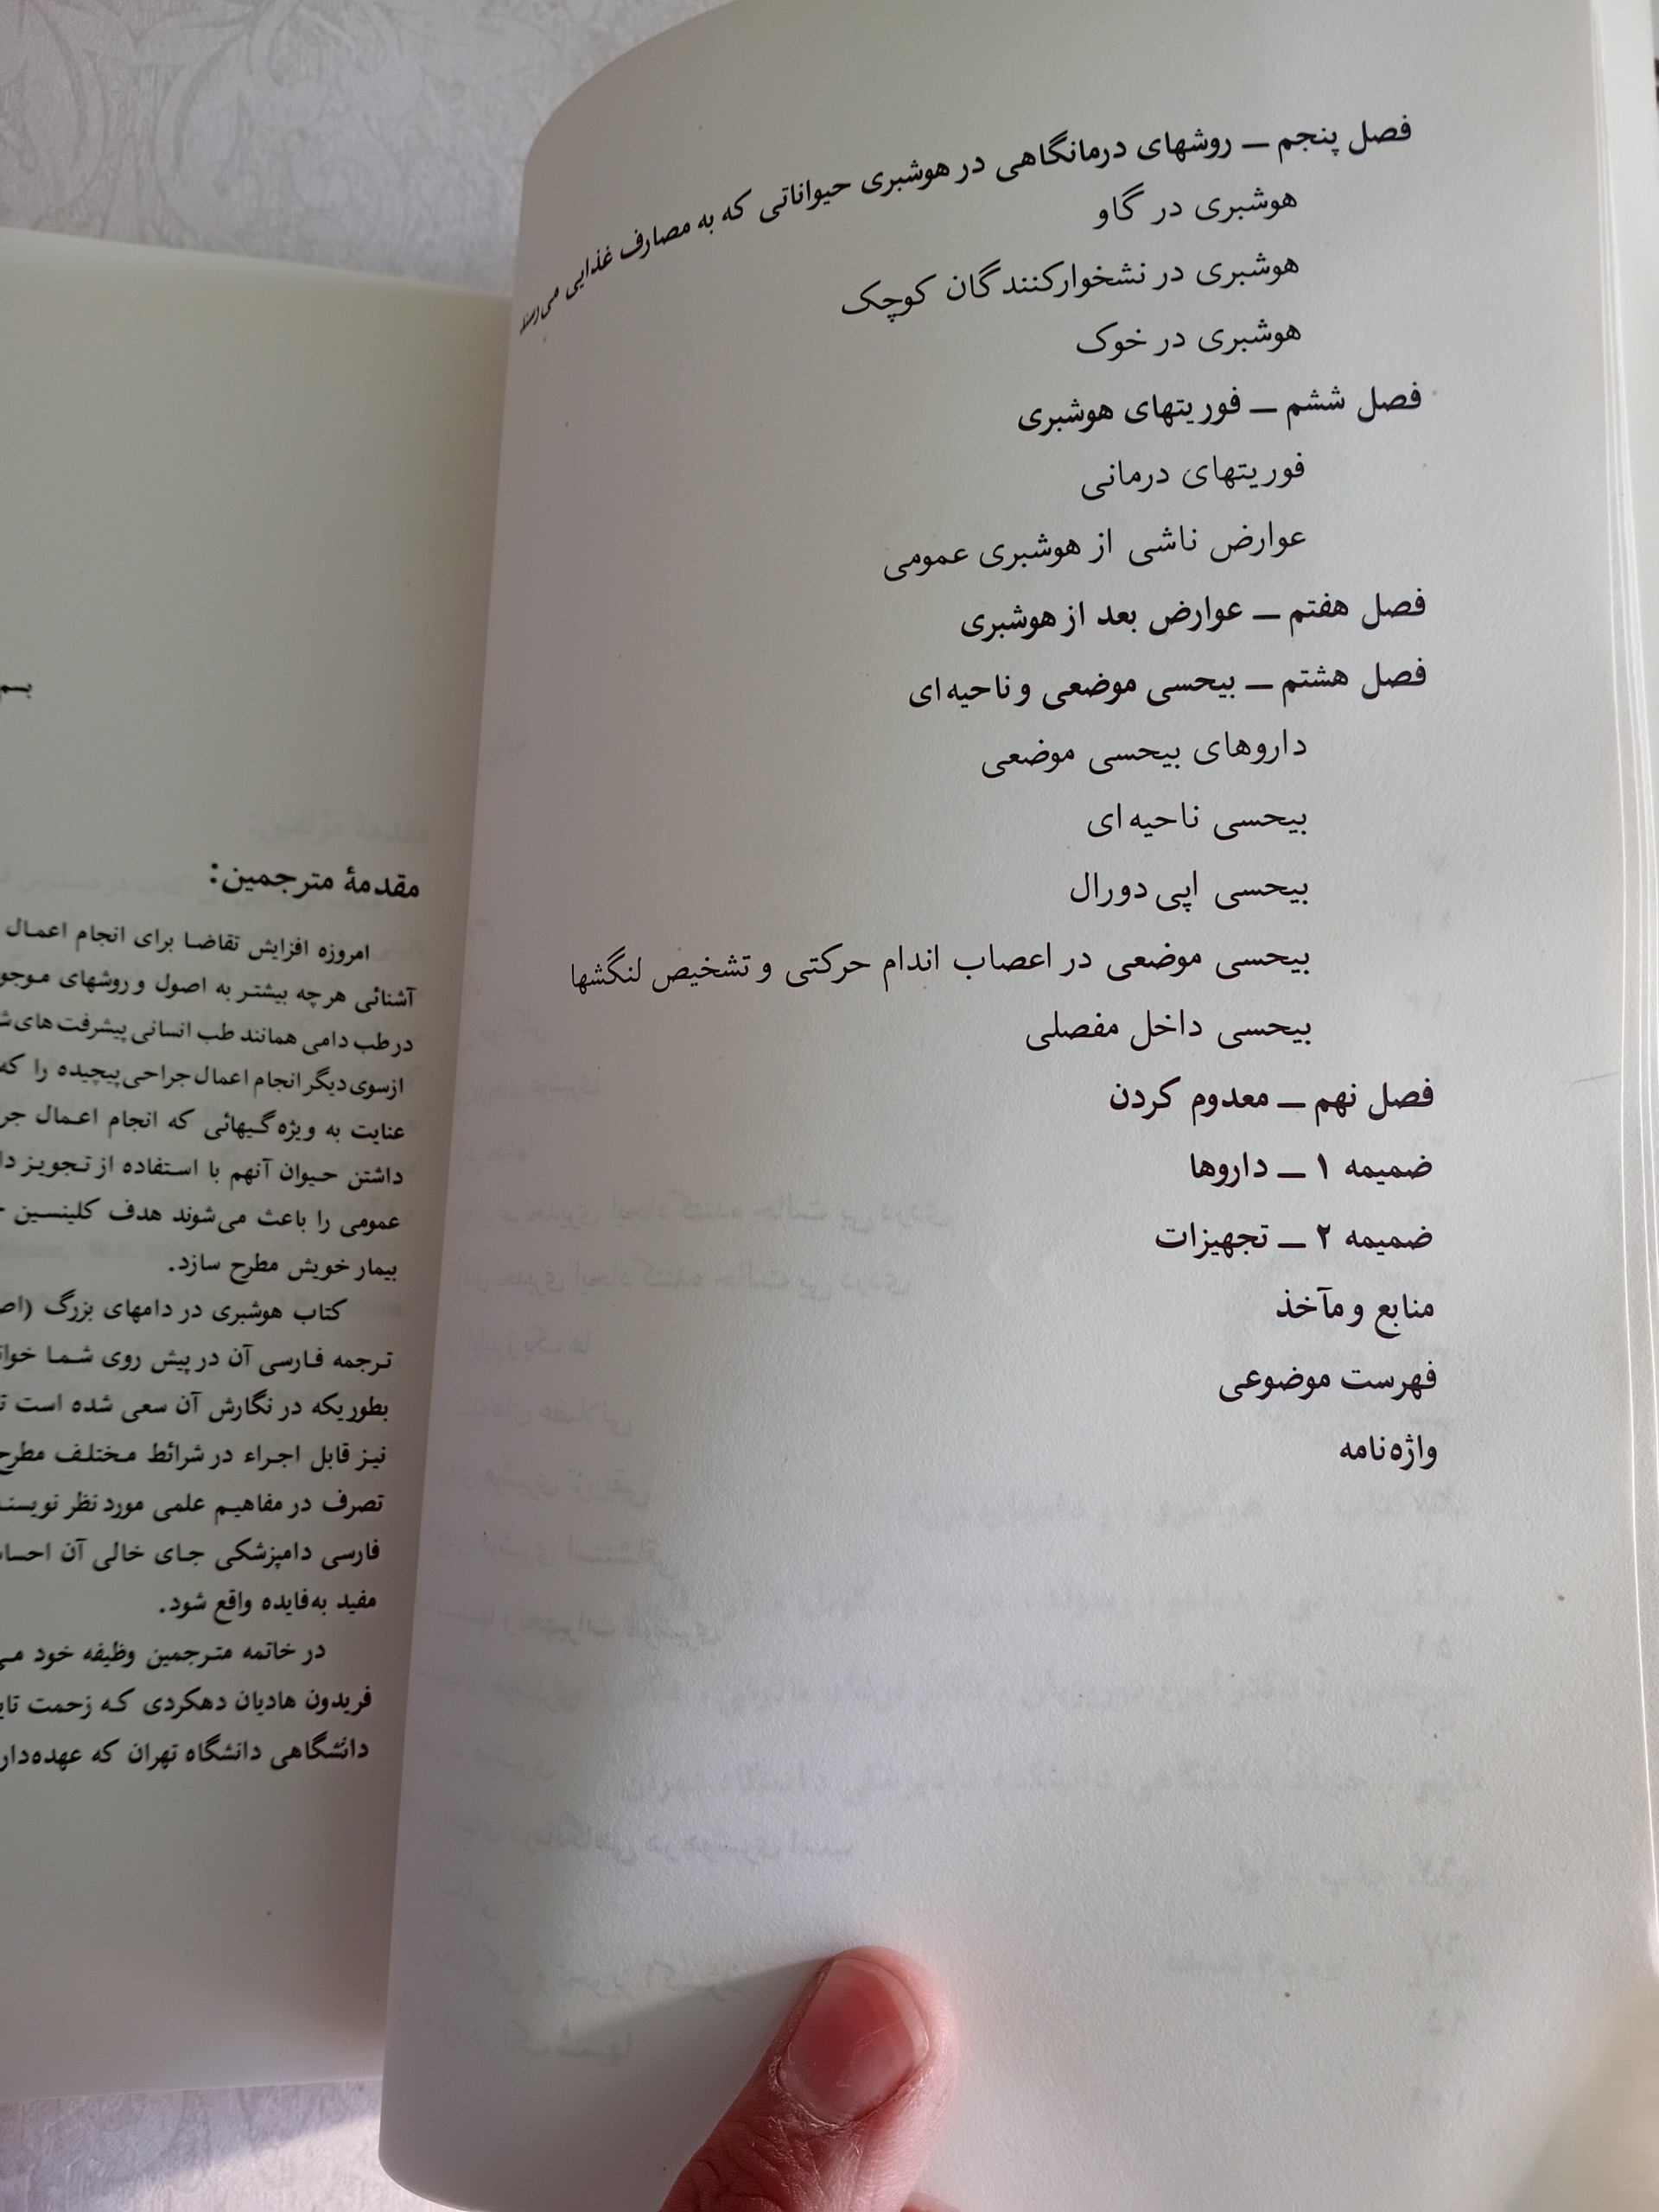 فصل پنجم ــ روشهای درمانگاهی در هوشبری حیواناتی که به مصارف غذایی می‌رسند
هوشبری در گاو
هوشبری در نشخوارکنندگان کوچک
هوشبری در خوک
فصل ششم ــ فوریتهای هوشبری
فوریتهای درمانی
عوارض ناشی از هوشبری عمومی
فصل هفتم ــ عوارض بعد از هوشبری
فصل هشتم ــ بیحسی موضعی و ناحیه‌ای
داروهای بیحسی موضعی
بیحسی ناحیه‌ای
بیحسی اپی‌دورال
بیحسی موضعی در اعصاب اندام حرکتی و تشخیص لنگشها
بیحسی داخل مفصلی
فصل نهم ــ معدوم کردن
ضمیمه ۱ ــ داروها
ضمیمه ۲ ــ تجهیزات
منابع و مآخذ
فهرست موضوعی
واژه‌نامه
بسم
مقدمهٔ مترجمین:
امروزه افزایش تقاضا برای انجام اعمال
آشنائی هرچه بیشتر به اصول و روشهای
در طب دامی همانند طب انسانی پیشرفت‌های
ازسوی دیگر انجام اعمال جراحی پیچیده را که
عنایت به ویژه‌گیهائی که انجام اعمال
داشتن حیوان آنهم با استفاده از تجویز
عمومی را باعث می‌شوند هدف کلینسین
بیمار خویش مطرح سازد.
کتاب هوشبری در دامهای بزرگ
ترجمه فارسی آن در پیش روی شما
بطوریکه در نگارش آن سعی شده است
نیز قابل اجراء در شرائط مختلف مطرح
تصرف در مفاهیم علمی مورد نظر
فارسی دامپزشکی جای خالی آن
مفید به‌فایده واقع شود.
در خاتمه مترجمین وظیفه خود
فریدون هادیان دهکردی که زحمت
دانشگاهی دانشگاه تهران که